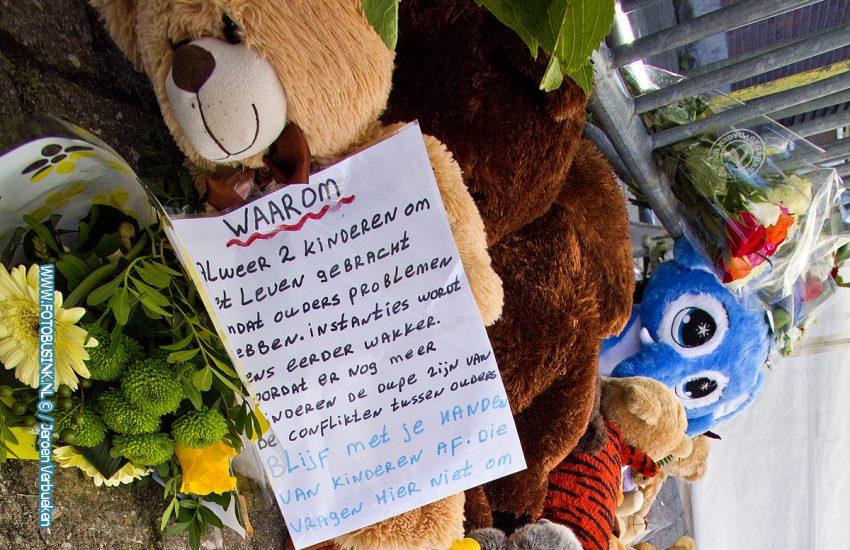 WAAROM
Alweer 2 kinderen om
't leven gebracht
omdat ouders problemen
hebben. Instanties wordt
eens eerder wakker.
voordat er nog meer
kinderen de dupe zijn van
de conflikten tussen ouders
Blijf met je handen
van kinderen af. Die
vragen hier niet om
www.FOTOBUSINK.NL © / Jeroen Verbueken